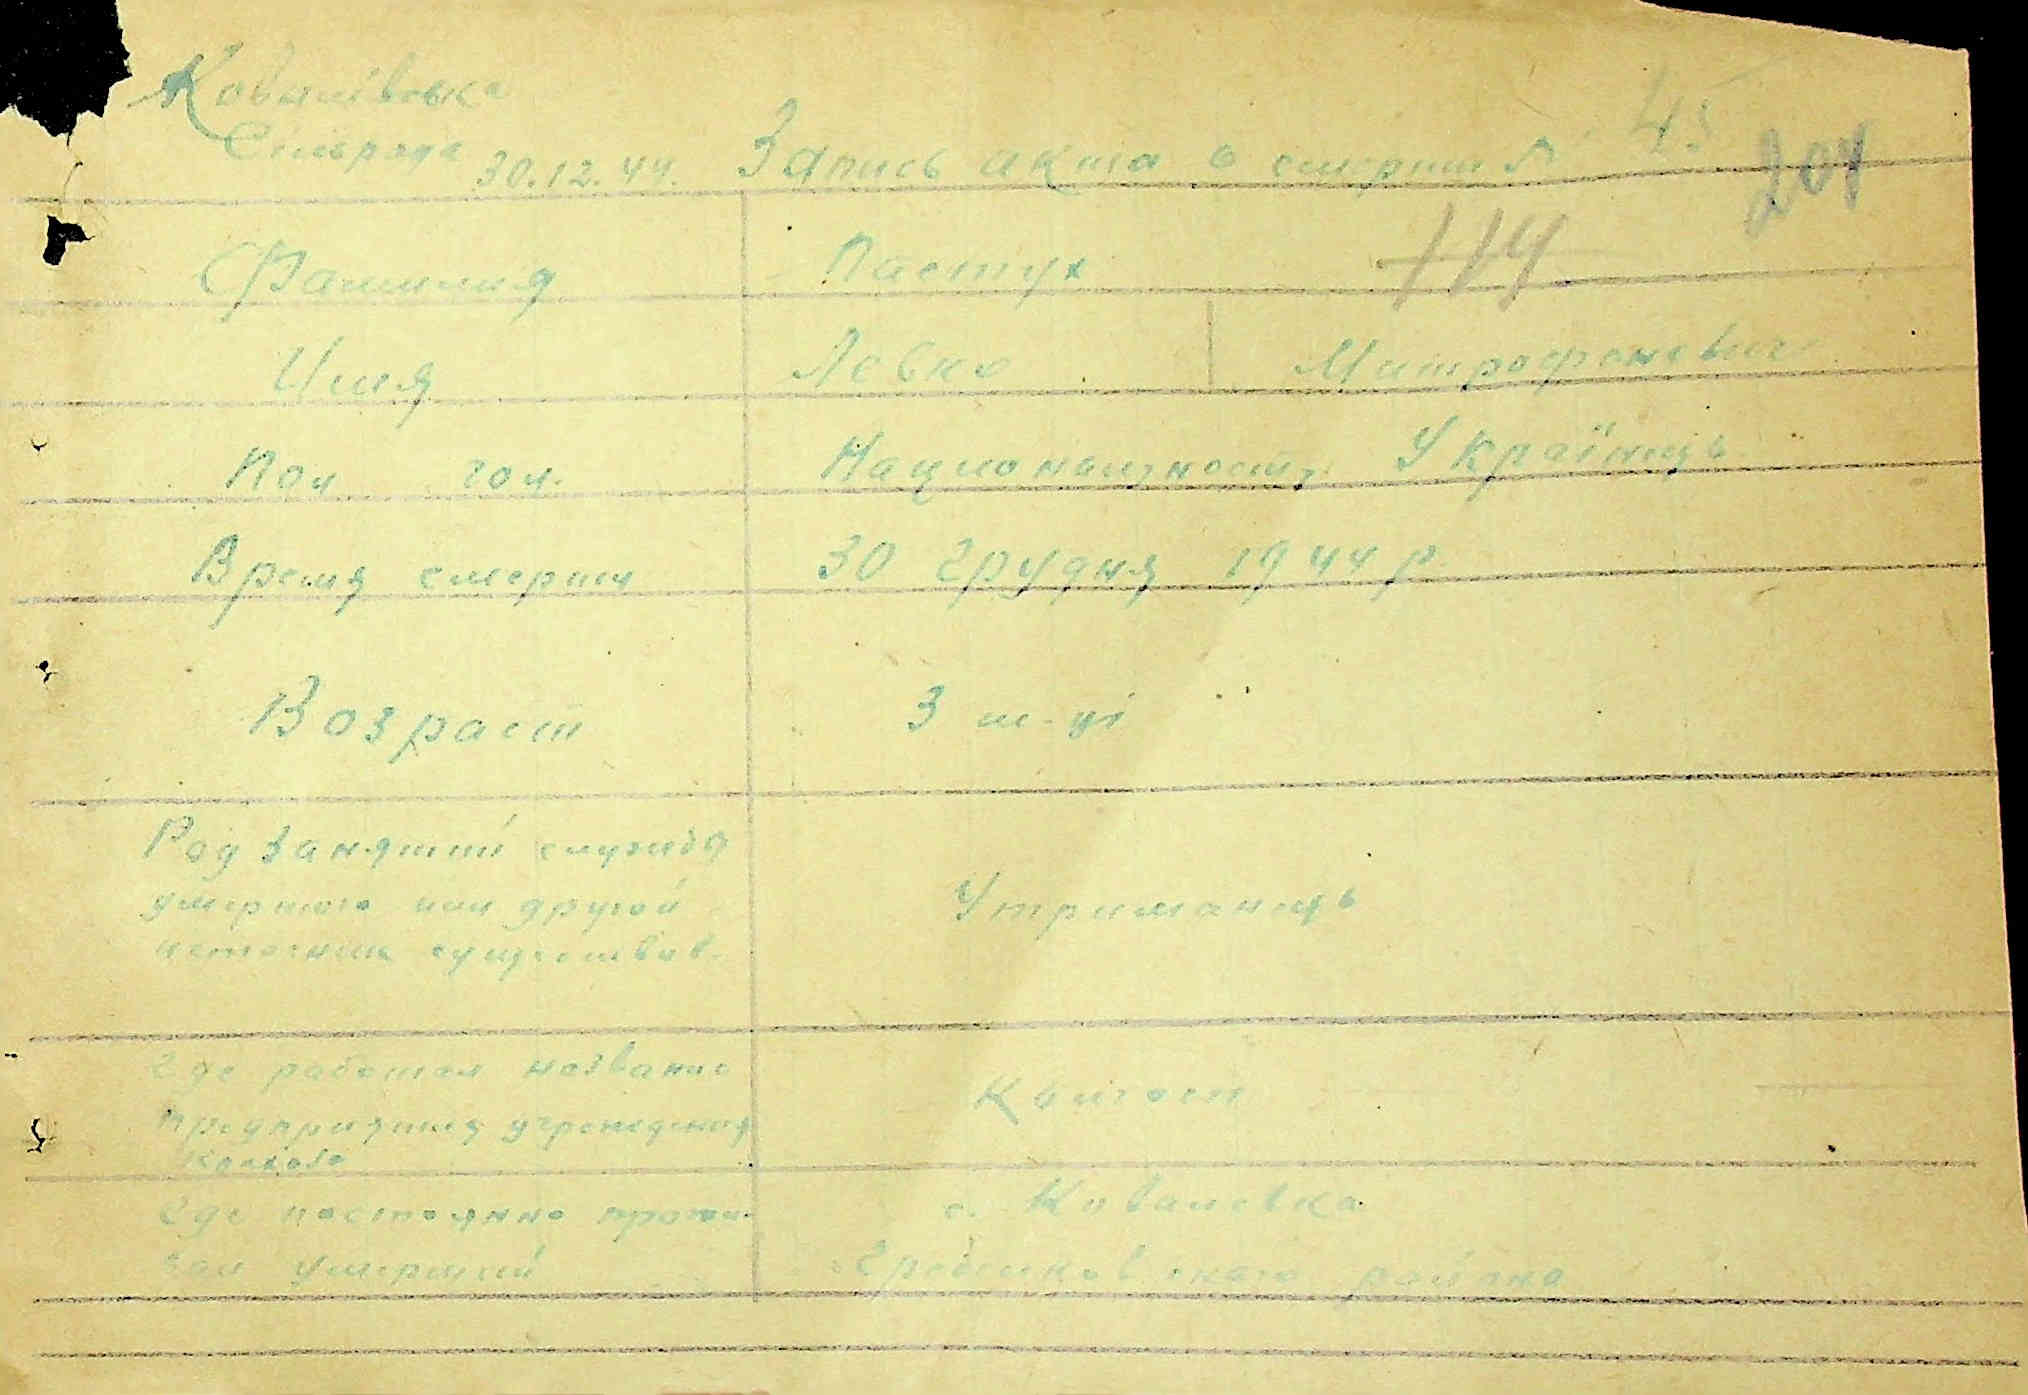 Ковалівська
Сільрада 30.12.44. Запись акта о смерти № 45
204
Фамилия Пастух 114
Имя Левко Митрофонович
Пол чол. Национальность Українець
Время смерти 30 грудня 1944 р.
Возраст 3 м-ці
Род занятий служба
умершого или другой
источник существов.
Утриманець
Где работал название
предприятия учреждения
колхоза
Колгосп
Где постоянно прожи-
вал умерший
с. Ковалевка
района